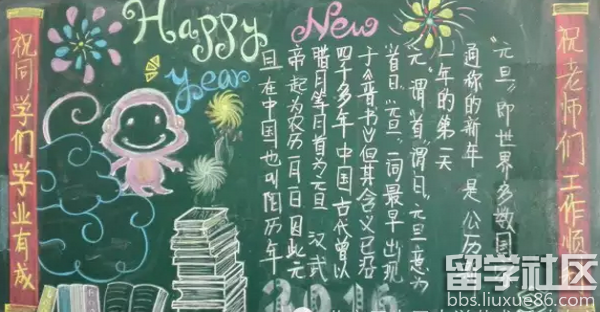 Happy New
Year
祝同学们学业有成
祝老师们工作顺
"元旦"即世界多数国
通称的新年 是公历
一年的第一天
元"谓"首"谓"日"元旦意为
首日"元旦"一词最早出现
于《晋书》但其含义已沿
四千多年 中国古代曾以
腊月等月首为元旦 汉武
帝起为农历一月一日因此元
旦在中国也叫阳历年
2016
留学社区
bbs.liuxue86.com